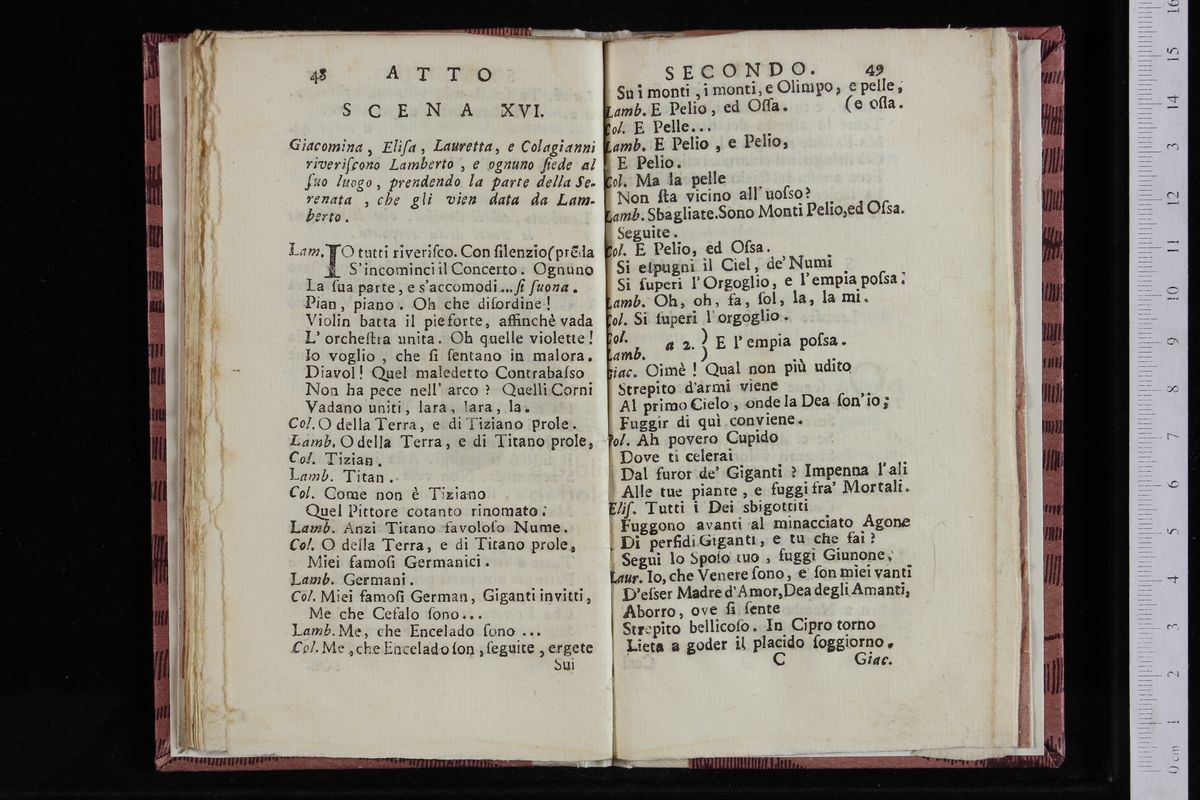 48 ATTO
SCENA XVI.
Giacomina, Eliſa, Lauretta, e Colagianni
riveriſcono Lamberto, e ognuno ſiede al
ſuo luogo, prendendo la parte della Se-
renata, che gli vien data da Lam-
berto.
Lam. IO tutti riveriſco. Con ſilenzio (prēda
S'incominci il Concerto. Ognuno
La ſua parte, e s'accomodi... ſi ſuona.
Pian, piano. Oh che diſordine!
Violin batta il pieforte, affinchè vada
L' orcheſtra unita. Oh quelle violette!
Io voglio, che ſi ſentano in malora.
Diavol! Quel maledetto Contrabaſso
Non ha pece nell' arco? Quelli Corni
Vadano uniti, lara, lara, la.
Col. O della Terra, e di Tiziano prole.
Lamb. O della Terra, e di Titano prole,
Col. Tizian.
Lamb. Titan.
Col. Come non è Tiziano
Quel Pittore cotanto rinomato.
Lamb. Anzi Titano favoloſo Nume.
Col. O della Terra, e di Titano prole,
Miei famoſi Germanici.
Lamb. Germani.
Col. Miei famoſi German, Giganti invitti,
Me che Cefalo ſono...
Lamb. Me, che Encelado ſono ...
Col. Me, che Encelado ſon, ſeguite, ergete
Sui
SECONDO. 49
Su i monti, i monti, e Olimpo, e pelle,
Lamb. E Pelio, ed Oſſa. (e oſſa.
Col. E Pelle...
Lamb. E Pelio, e Pelio,
E Pelio.
Col. Ma la pelle
Non ſta vicino all' uoſso?
Lamb. Sbagliate. Sono Monti Pelio, ed Oſsa.
Seguite.
Col. E Pelio, ed Oſsa.
Si eſpugni il Ciel, de' Numi
Si ſuperi l'Orgoglio, e l'empia poſsa.
Lamb. Oh, oh, fa, ſol, la, la mi.
Col. Si ſuperi l'orgoglio.
Col. a 2. ) E l'empia poſsa.
Lamb. )
Giac. Oimè! Qual non più udito
Strepito d'armi viene
Al primo Cielo, onde la Dea ſon' io;
Fuggir di quì conviene.
Col. Ah povero Cupido
Dove ti celerai
Dal furor de' Giganti? Impenna l'ali
Alle tue piante, e fuggi fra' Mortali.
Eliſ. Tutti i Dei sbigottiti
Fuggono avanti al minacciato Agone
Di perfidi Giganti, e tu che fai?
Segui lo Spoſo tuo, fuggi Giunone.
Laur. Io, che Venere ſono, e ſon miei vanti
D'eſser Madre d'Amor, Dea degli Amanti,
Aborro, ove ſi ſente
Strepito bellicoſo. In Cipro torno
Lieta a goder il placido ſoggiorno.
C Giac.
0 cm 1 2 3 4 5 6 7 8 9 10 11 12 13 14 15 16